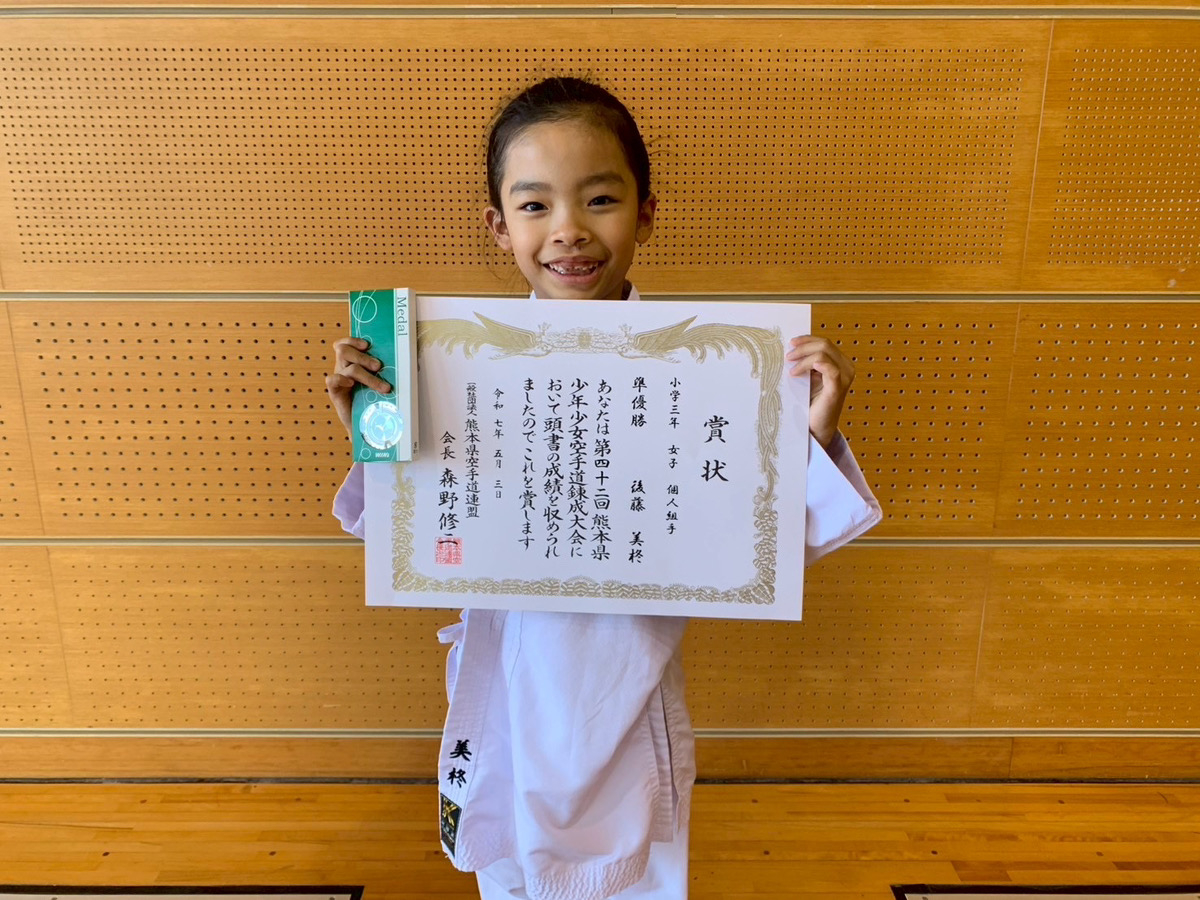 賞状
小学三年 女子 個人組手
準優勝 後藤 美柊
あなたは第四十二回熊本県
少年少女空手道錬成大会に
おいて頭書の成績を収められ
ましたのでこれを賞します
令和七年 五月 三日
一般社団法人 熊本県空手道連盟
会長 森野修二
Medal
美柊